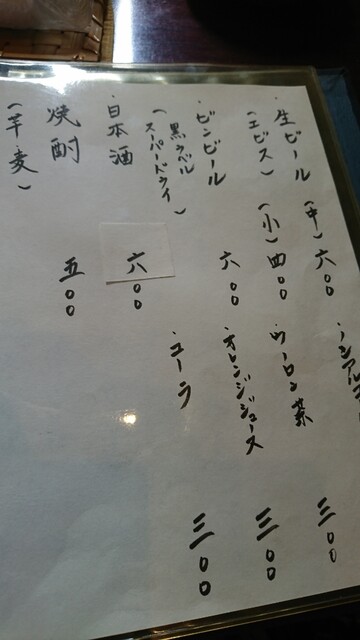 ・生ビール (中) 六〇〇
(エビス) (小) 四〇〇
・ビンビール 六〇〇
(黒ラベル
スーパードライ)
・日本酒 六〇〇
焼酎 五〇〇
(芋 麦)
・ノンアル 三〇〇
・ウーロン茶 三〇〇
・オレンジジュース 三〇〇
・コーラ